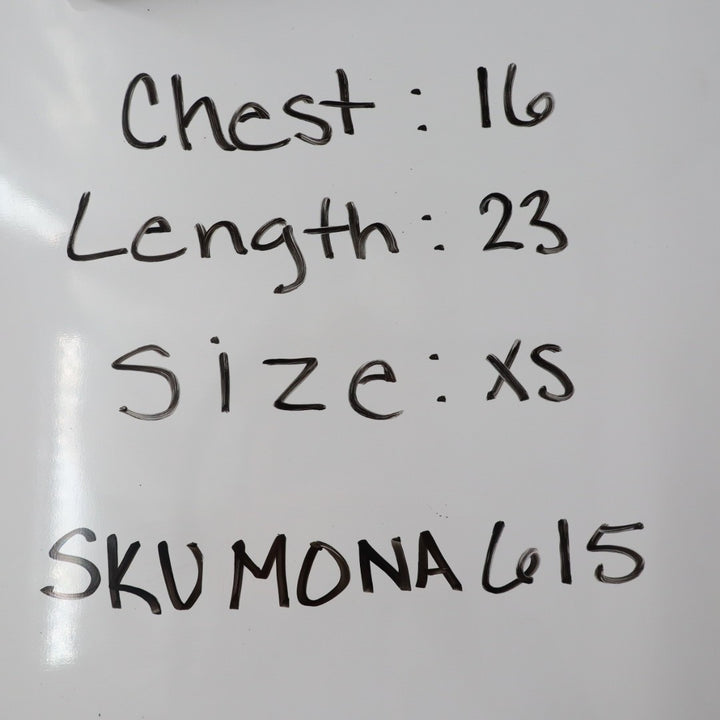 Chest: 16
Length: 23
Size: XS
SKU MONA 615